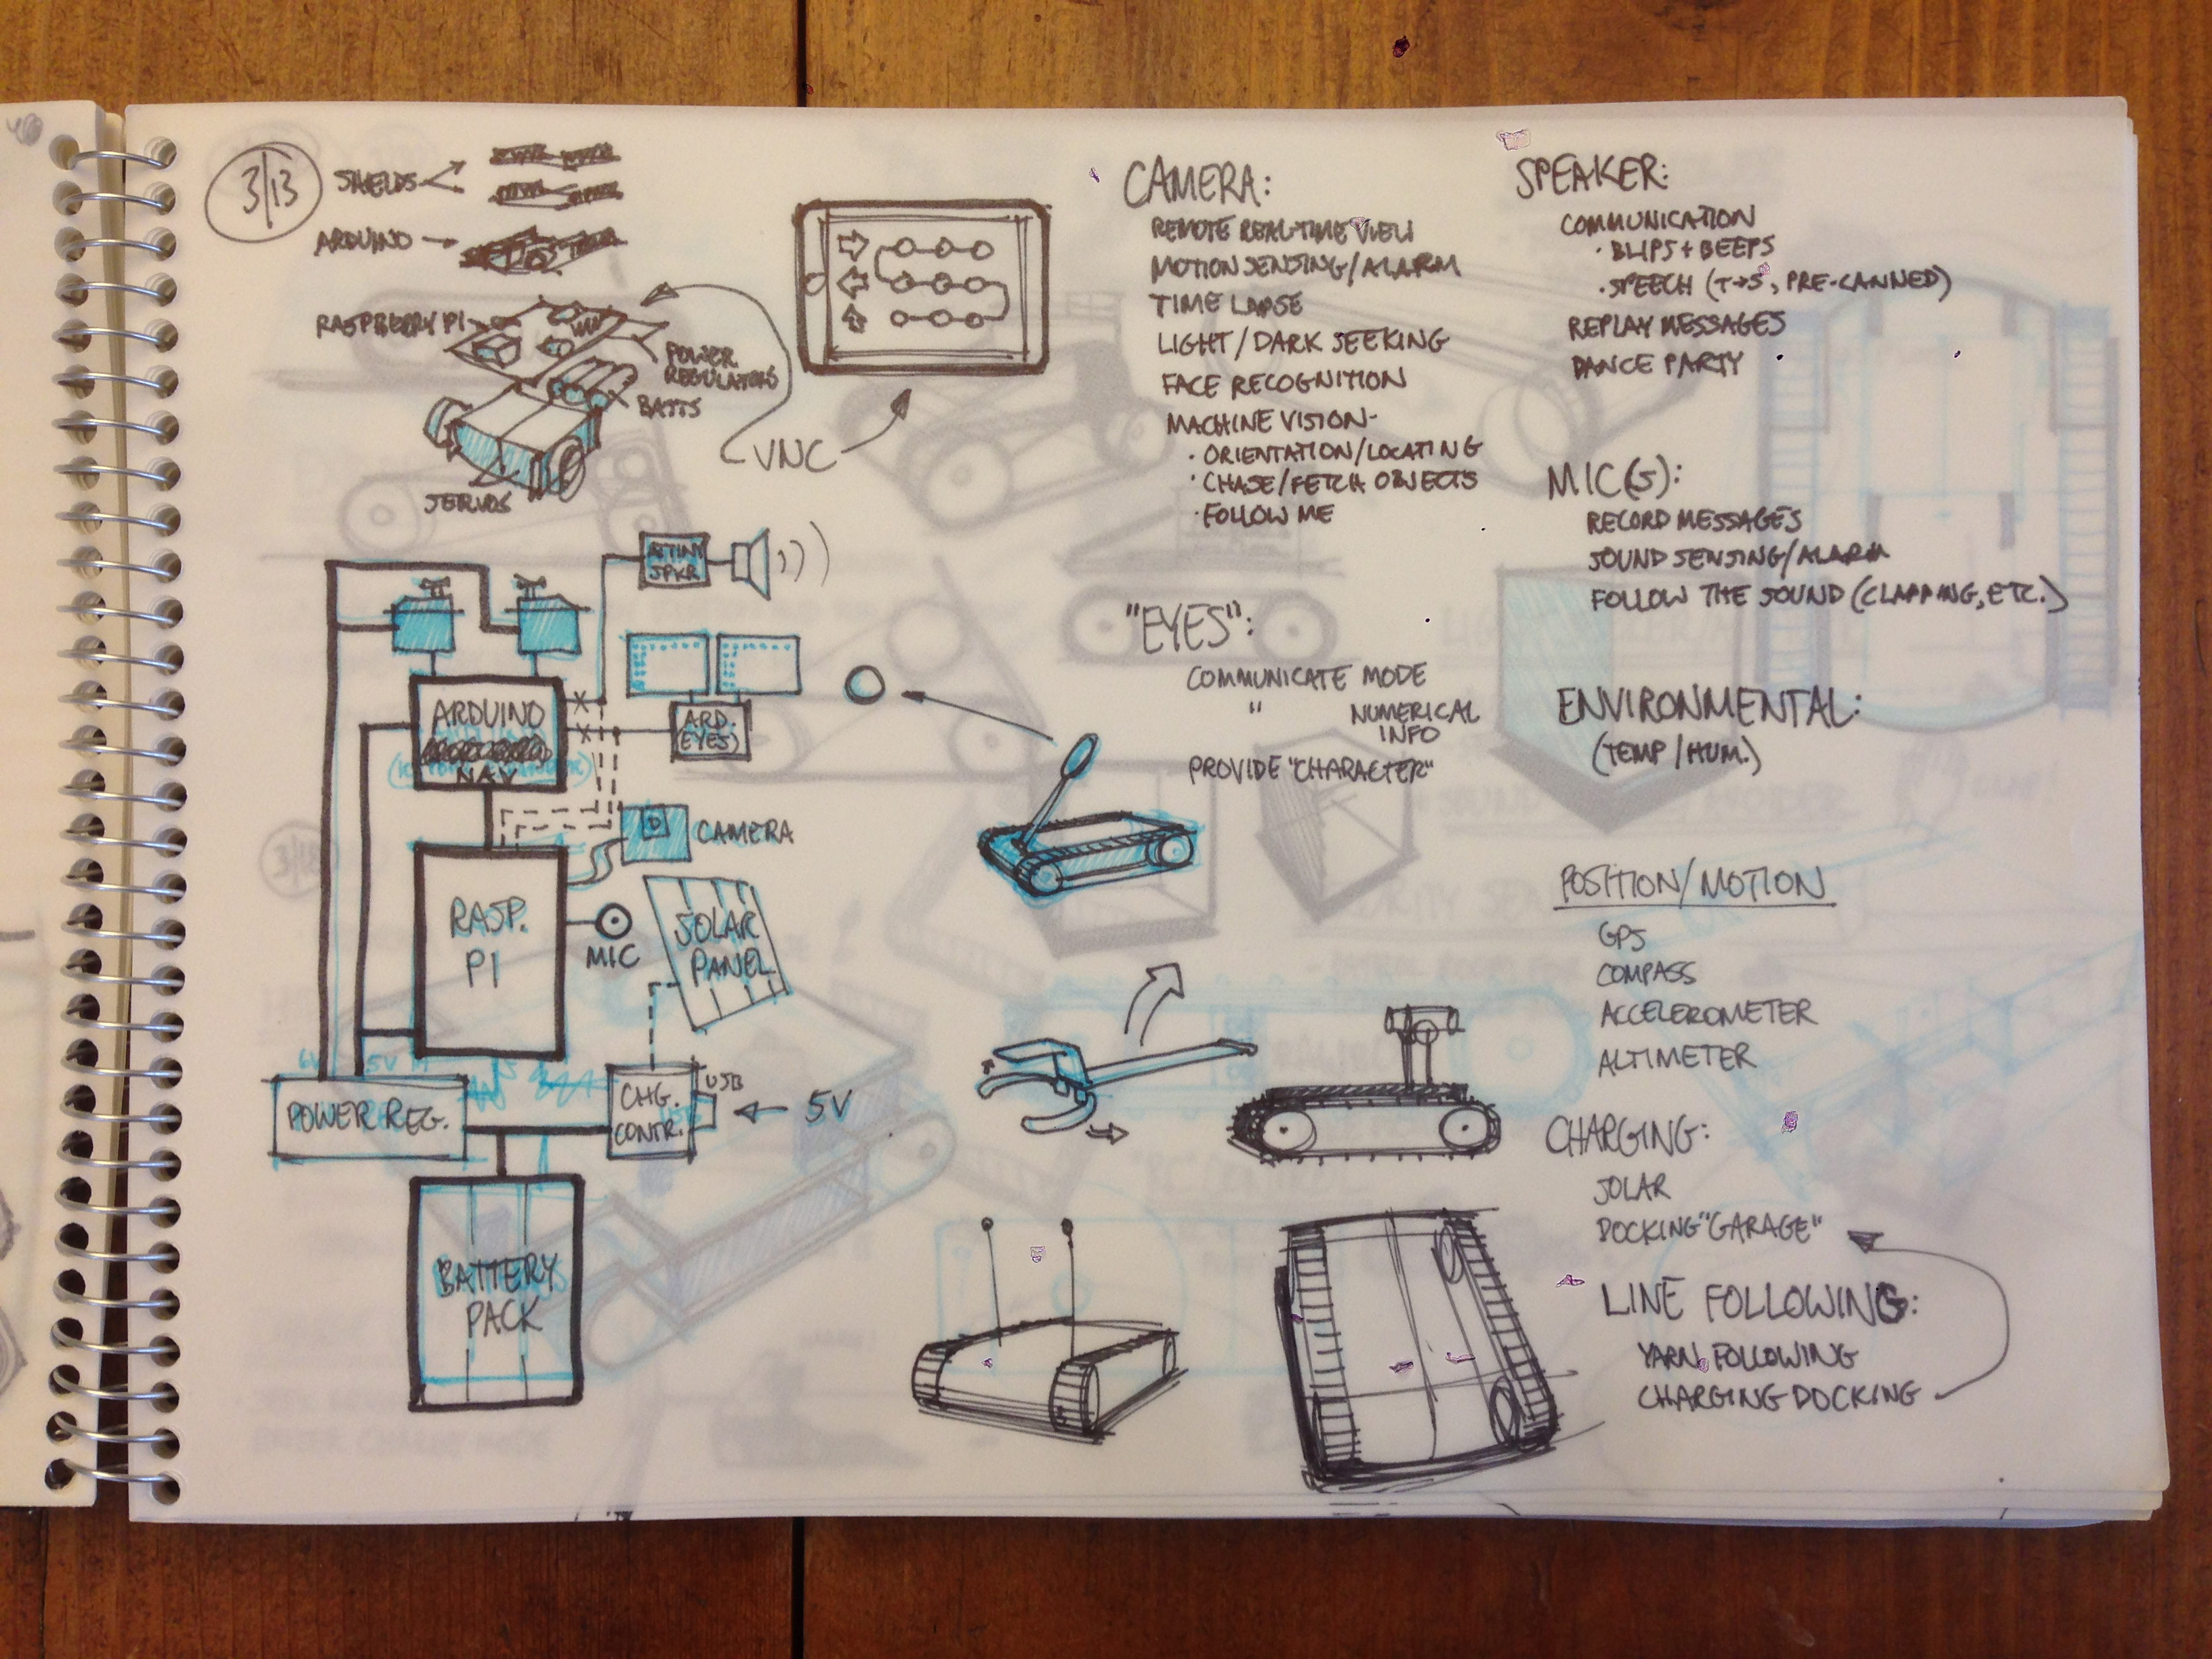 3/13
SHIELDS
ARDUINO
RASPBERRY PI
POWER
REGULATORS
BATTS
SERVOS
VNC
ATTINY
SPKR
ARDUINO
NAV
ARD.
(EYES)
CAMERA
RASP.
PI
MIC
SOLAR
PANEL
6V
5V
POWER REG.
CHG.
CONTR.
USB
5V
BATTERY
PACK
CAMERA:
REMOTE REAL-TIME VIEW
MOTION SENSING/ALARM
TIME LAPSE
LIGHT/DARK SEEKING
FACE RECOGNITION
MACHINE VISION-
· ORIENTATION/LOCATING
· CHASE/FETCH OBJECTS
· FOLLOW ME
"EYES":
COMMUNICATE MODE
" NUMERICAL
INFO
PROVIDE "CHARACTER"
SPEAKER:
COMMUNICATION
· BLIPS + BEEPS
· SPEECH (T→S, PRE-CANNED)
REPLAY MESSAGES
DANCE PARTY
MIC(S):
RECORD MESSAGES
SOUND SENSING/ALARM
FOLLOW THE SOUND (CLAPPING, ETC.)
ENVIRONMENTAL:
(TEMP/HUM.)
POSITION/MOTION
GPS
COMPASS
ACCELEROMETER
ALTIMETER
CHARGING:
SOLAR
DOCKING "GARAGE"
LINE FOLLOWING:
YARN FOLLOWING
CHARGING DOCKING